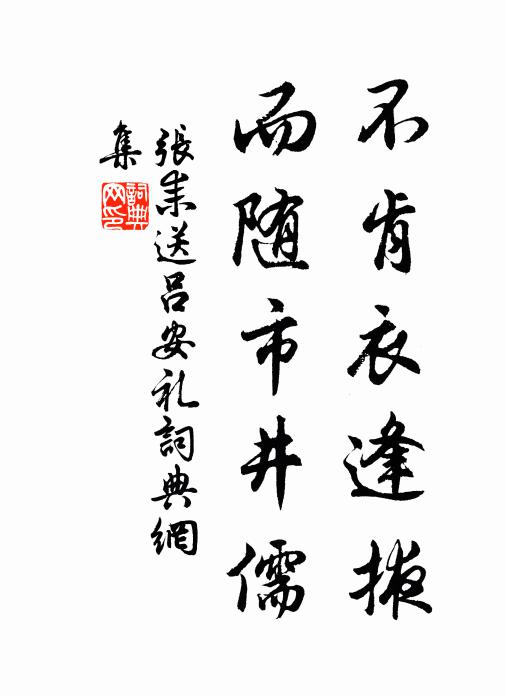 不肯衣逢掖
而随市井儒
張耒送吕安礼詞典網
集
詞典网印